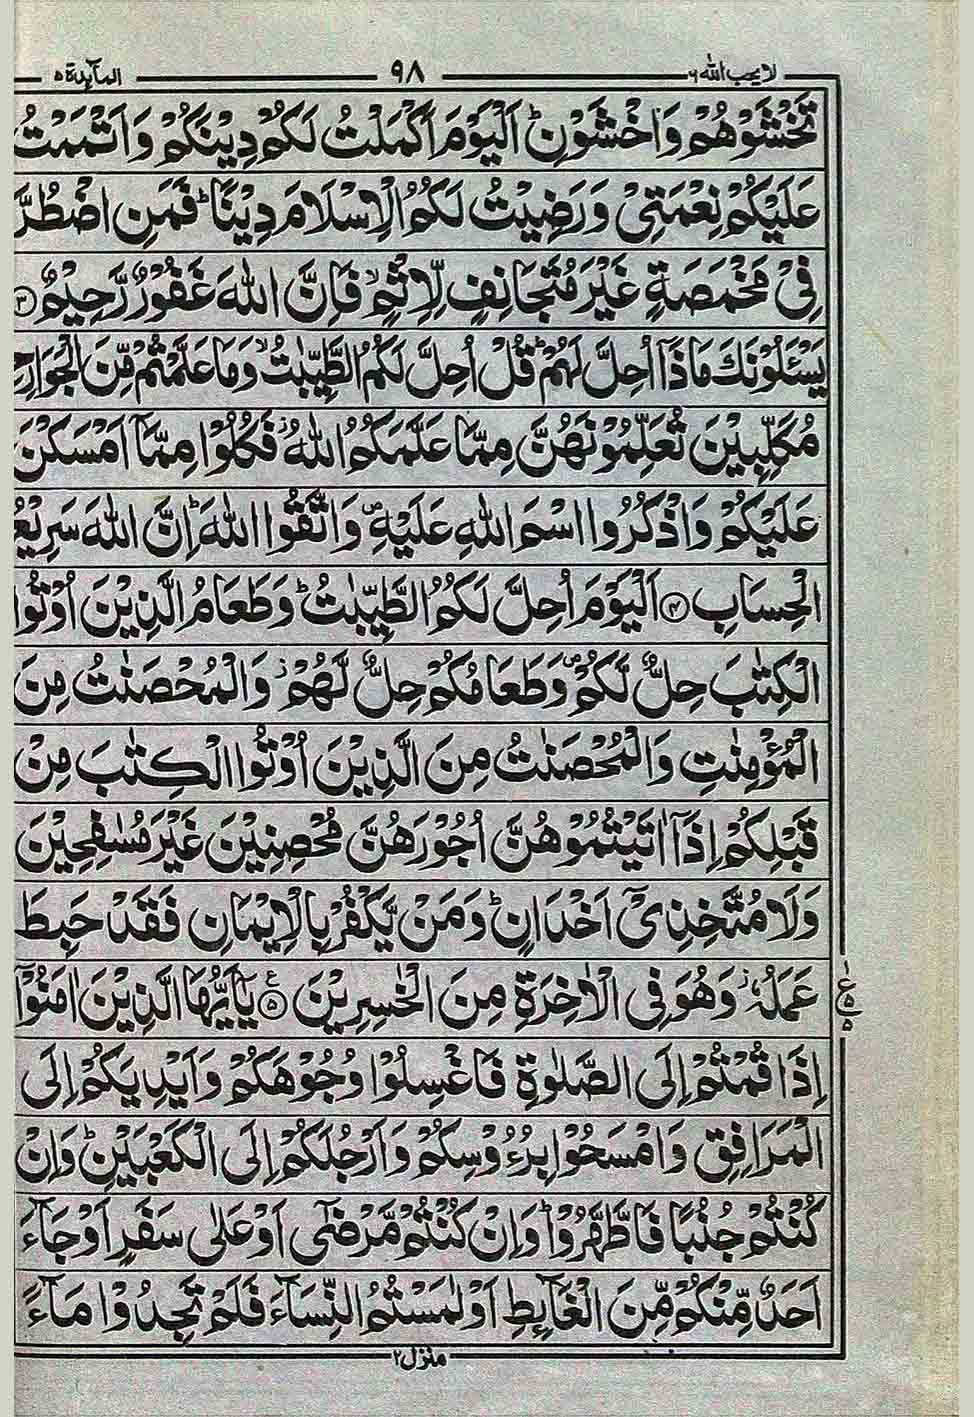 لا یحب الله ۶ ۹۸ المآئدة ۵
تَخْشَوْهُمْ وَاخْشَوْنِ ؕ اَلْیَوْمَ اَكْمَلْتُ لَكُمْ دِیْنَكُمْ وَاَتْمَمْتُ
عَلَیْكُمْ نِعْمَتِیْ وَرَضِیْتُ لَكُمُ الْاِسْلَامَ دِیْنًا ؕ فَمَنِ اضْطُرَّ
فِیْ مَخْمَصَةٍ غَیْرَ مُتَجَانِفٍ لِّاِثْمٍ ۙ فَاِنَّ اللّٰهَ غَفُوْرٌ رَّحِیْمٌ ﴿۳﴾
یَسْـَٔلُوْنَكَ مَاذَاۤ اُحِلَّ لَهُمْ ؕ قُلْ اُحِلَّ لَكُمُ الطَّیِّبٰتُ ۙ وَمَا عَلَّمْتُمْ مِّنَ الْجَوَارِحِ
مُكَلِّبِیْنَ تُعَلِّمُوْنَهُنَّ مِمَّا عَلَّمَكُمُ اللّٰهُ ؗ فَكُلُوْا مِمَّاۤ اَمْسَكْنَ
عَلَیْكُمْ وَاذْكُرُوا اسْمَ اللّٰهِ عَلَیْهِ ۪ وَاتَّقُوا اللّٰهَ ؕ اِنَّ اللّٰهَ سَرِیْعُ
الْحِسَابِ ﴿۴﴾ اَلْیَوْمَ اُحِلَّ لَكُمُ الطَّیِّبٰتُ ؕ وَطَعَامُ الَّذِیْنَ اُوْتُوا
الْكِتٰبَ حِلٌّ لَّكُمْ ۪ وَطَعَامُكُمْ حِلٌّ لَّهُمْ ؗ وَالْمُحْصَنٰتُ مِنَ
الْمُؤْمِنٰتِ وَالْمُحْصَنٰتُ مِنَ الَّذِیْنَ اُوْتُوا الْكِتٰبَ مِنْ
قَبْلِكُمْ اِذَاۤ اٰتَیْتُمُوْهُنَّ اُجُوْرَهُنَّ مُحْصِنِیْنَ غَیْرَ مُسٰفِحِیْنَ
وَلَا مُتَّخِذِیْۤ اَخْدَانٍ ؕ وَمَنْ یَّكْفُرْ بِالْاِیْمَانِ فَقَدْ حَبِطَ
عَمَلُهٗ ؗ وَهُوَ فِی الْاٰخِرَةِ مِنَ الْخٰسِرِیْنَ ﴿۵﴾ ع یٰۤاَیُّهَا الَّذِیْنَ اٰمَنُوْۤا
۱ ع ۵ ۵
اِذَا قُمْتُمْ اِلَی الصَّلٰوةِ فَاغْسِلُوْا وُجُوْهَكُمْ وَاَیْدِیَكُمْ اِلَی
الْمَرَافِقِ وَامْسَحُوْا بِرُءُوْسِكُمْ وَاَرْجُلَكُمْ اِلَی الْكَعْبَیْنِ ؕ وَاِنْ
كُنْتُمْ جُنُبًا فَاطَّهَّرُوْا ؕ وَاِنْ كُنْتُمْ مَّرْضٰۤی اَوْ عَلٰی سَفَرٍ اَوْ جَآءَ
اَحَدٌ مِّنْكُمْ مِّنَ الْغَآىِٕطِ اَوْ لٰمَسْتُمُ النِّسَآءَ فَلَمْ تَجِدُوْا مَآءً
منزل ۲